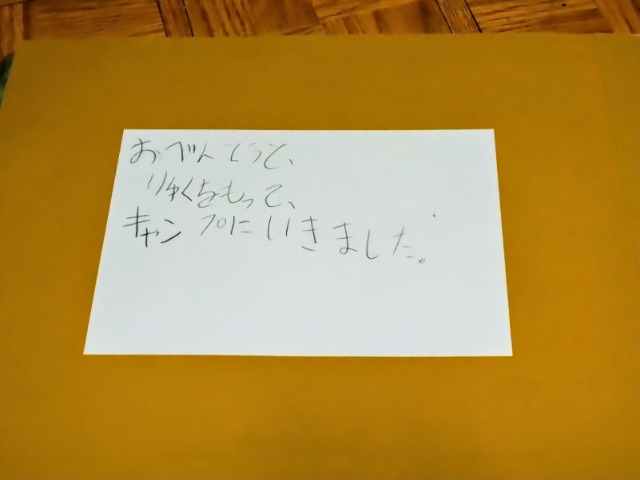 おべんとうと、
りゅくをもって、
キャンプにいきました。